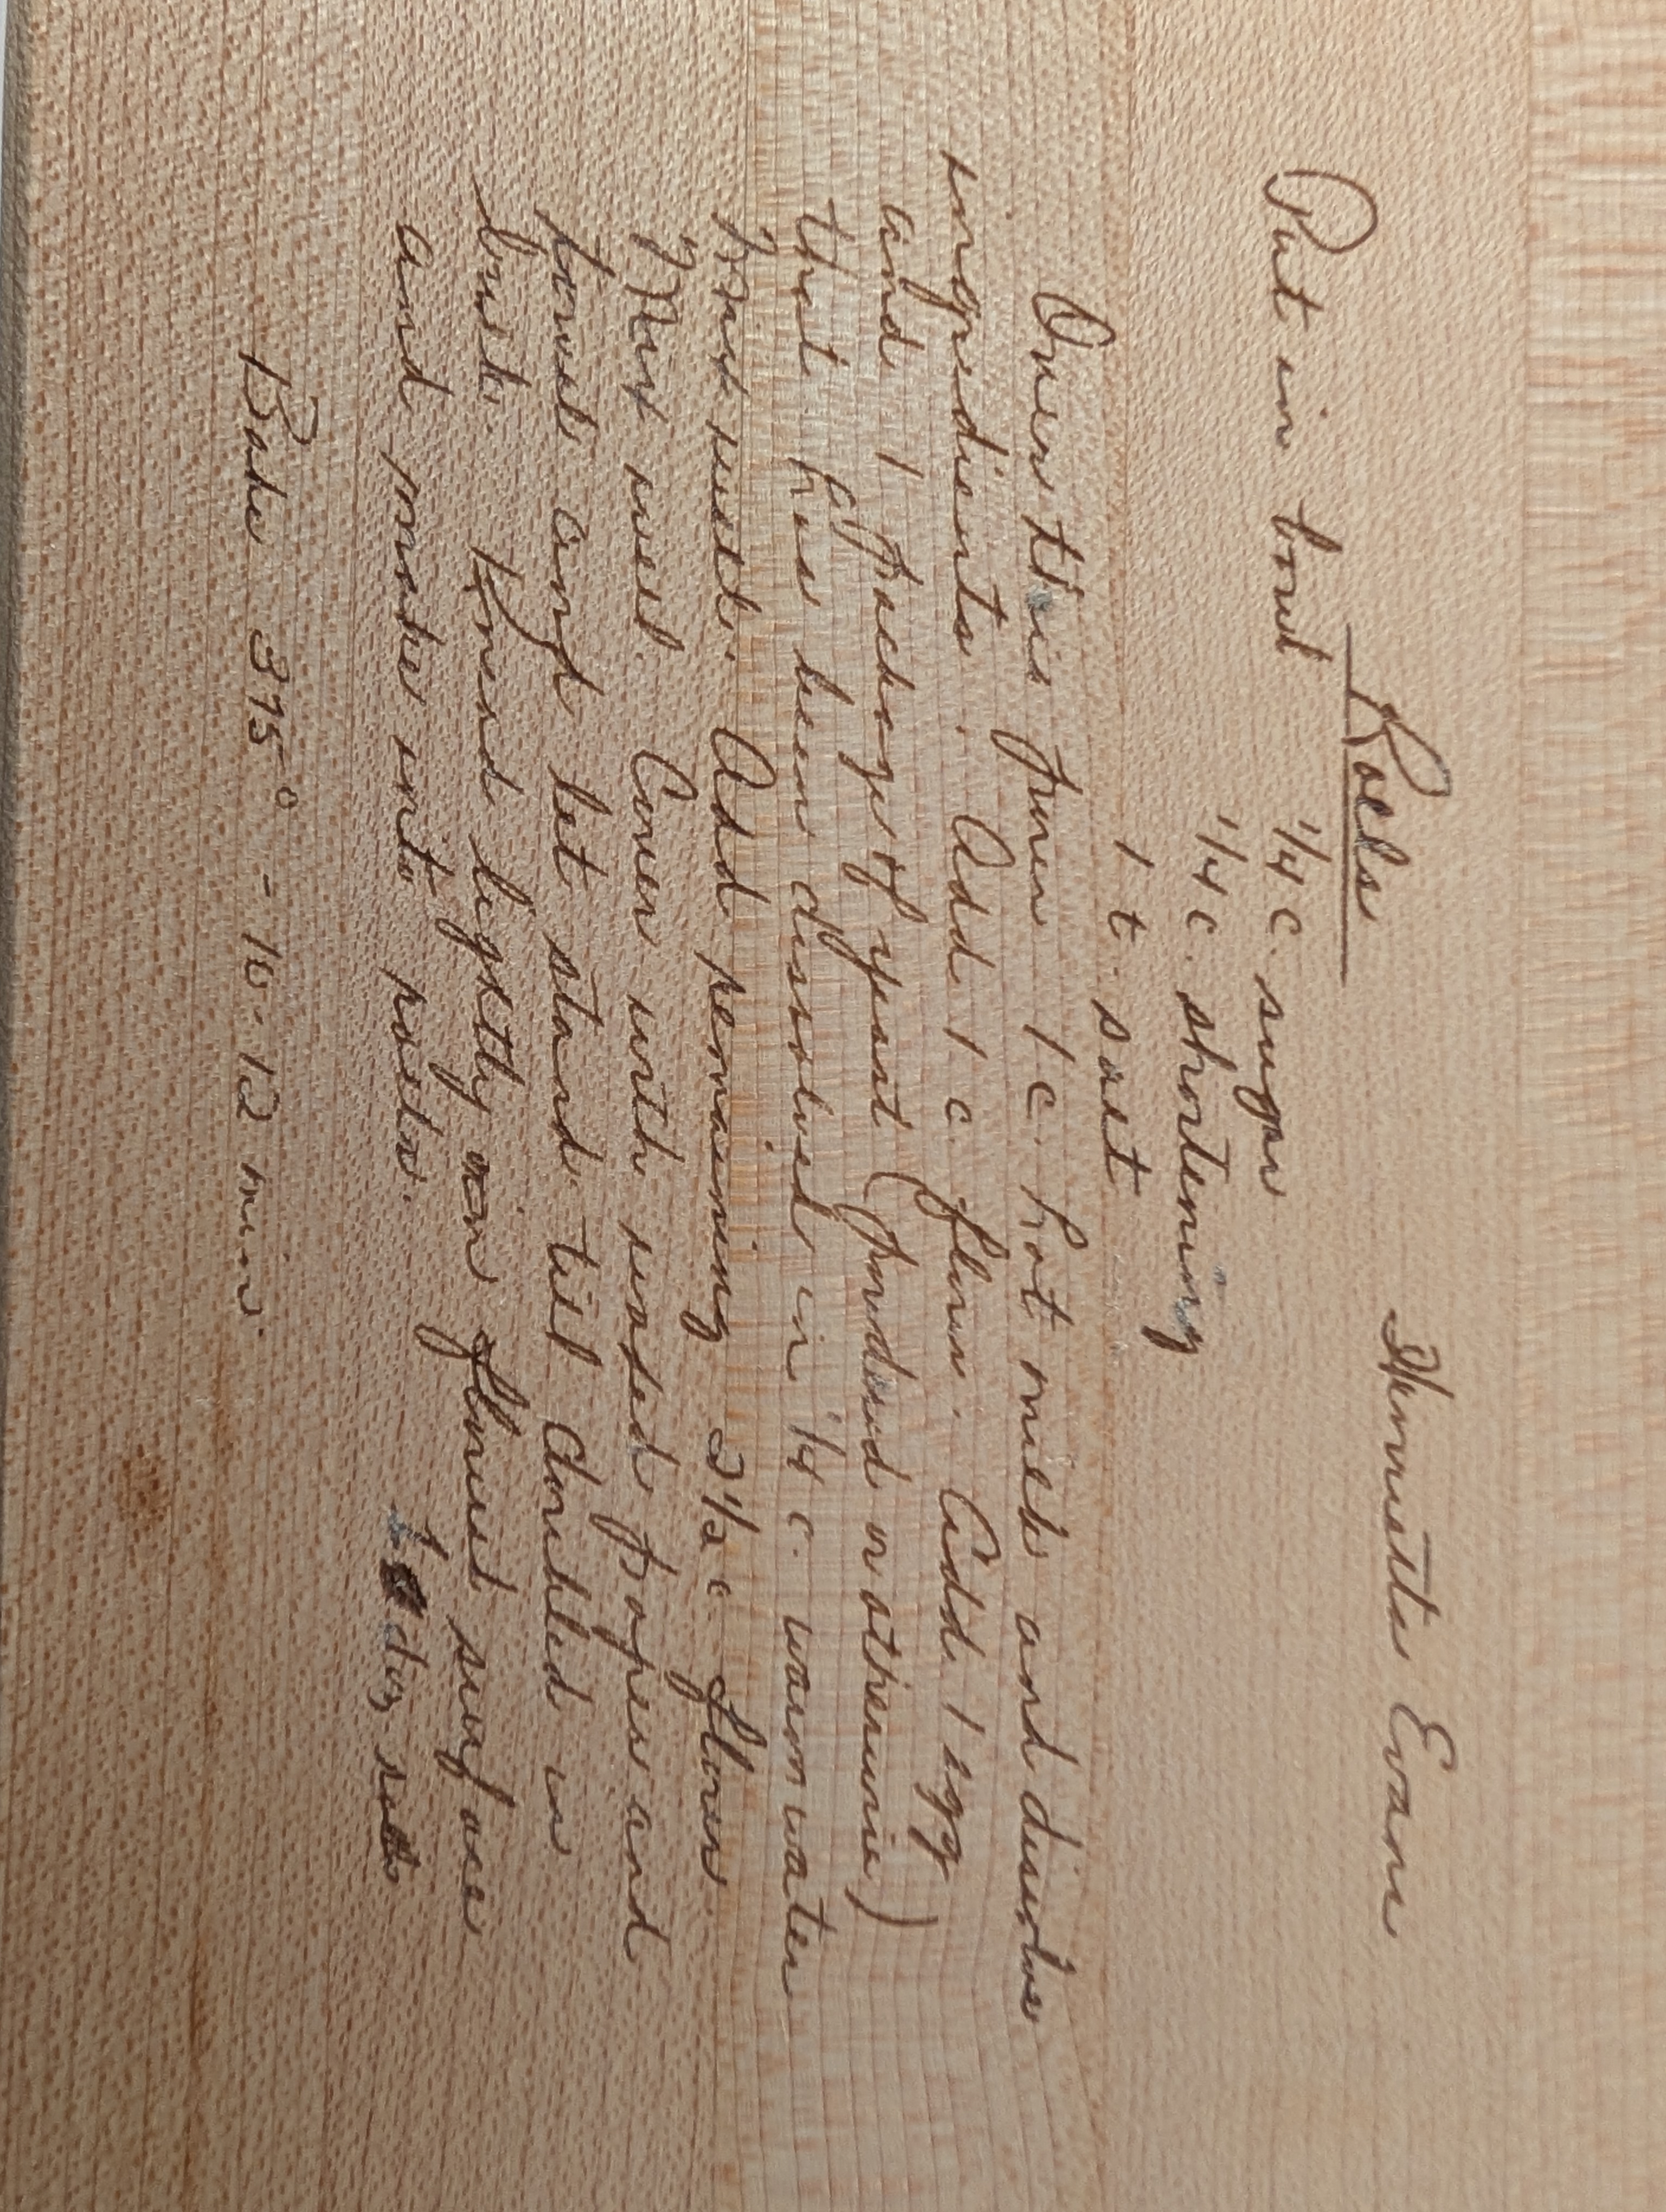 Rolls
Henrietta Evans
Put in bowl 1/4 c. sugar
1/4 c. shortening
1 t. salt
Over this pour 1 c. hot milk and dissolve
ingredients. Add 1 c. flour. Add 1 egg
and 1 package of yeast (powdered or otherwise)
that has been dissolved in 1/4 c. warm water
Mix well. Add remaining 2 1/2 c flour.
Mix well. Cover with waxed paper and
towel and let stand till doubled in
bulk. Knead lightly on floured surface
and makes into rolls. doz rolls
Bake 375° - 10-12 min